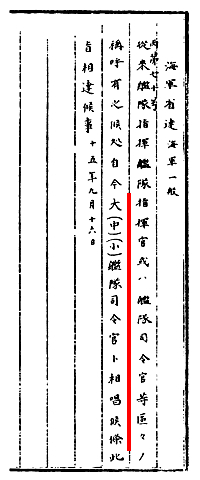 海軍省達 海軍一般
丙第七十号
従来艦隊指揮艦隊指揮官或ハ艦隊司令官等区々ノ
称呼有之候処自今大(中)(小)艦隊司令官ト相唱候条此
旨相達候事 十五年九月十六日